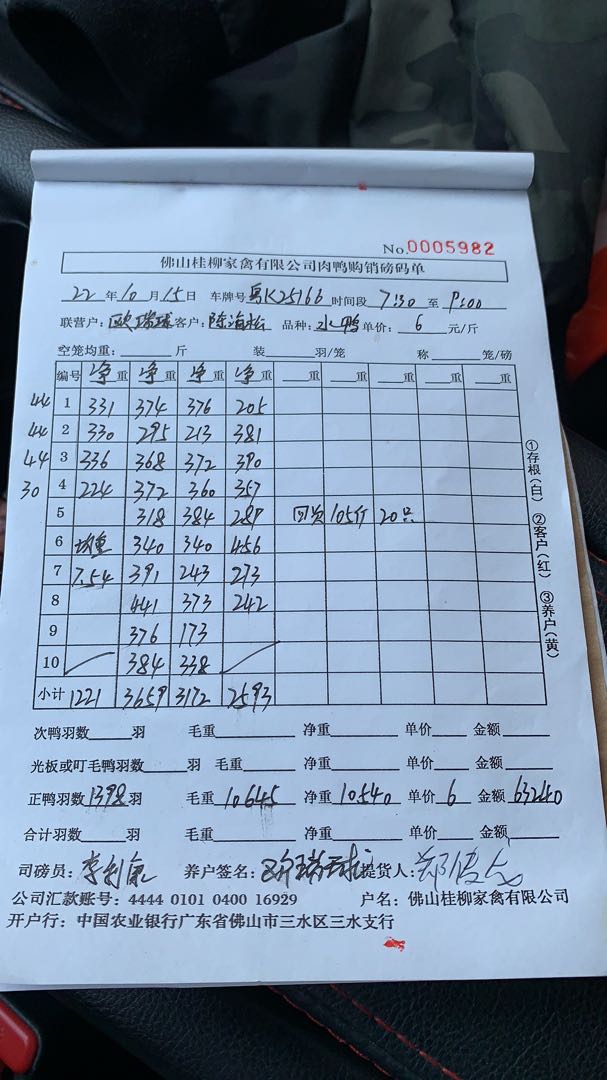 No.0005982
佛山桂柳家禽有限公司肉鸭购销磅码单
22年10月15日 车牌号粤K25166 时间段 7:30 至 9:00
联营户:欧瑞球 客户:陈海松 品种:水鸭 单价:6 元/斤
空笼均重:____斤 装____羽/笼 称____笼/磅
编号 净重 净重 净重 净重 __重 __重 __重 __重
44 1 331 374 376 205
44 2 330 295 213 381
44 3 336 368 372 390
30 4 224 372 360 357
5 318 384 287 回资 105斤 20只
6 均重 340 340 456
7 7.54 391 243 273
8 441 373 242
9 376 173
10 384 338
小计 1221 3659 3172 2593
①存根(白) ②客户(红) ③养户(黄)
次鸭羽数____羽 毛重____ 净重____ 单价____ 金额____
光板或叮毛鸭羽数____羽 毛重____ 净重____ 单价____ 金额____
正鸭羽数1398羽 毛重10645 净重10540 单价6 金额63240
合计羽数____羽 毛重____ 净重____ 单价____ 金额____
司磅员: 养户签名: 提货人:
公司汇款账号:4444 0101 0400 16929 户名:佛山桂柳家禽有限公司
开户行:中国农业银行广东省佛山市三水区三水支行